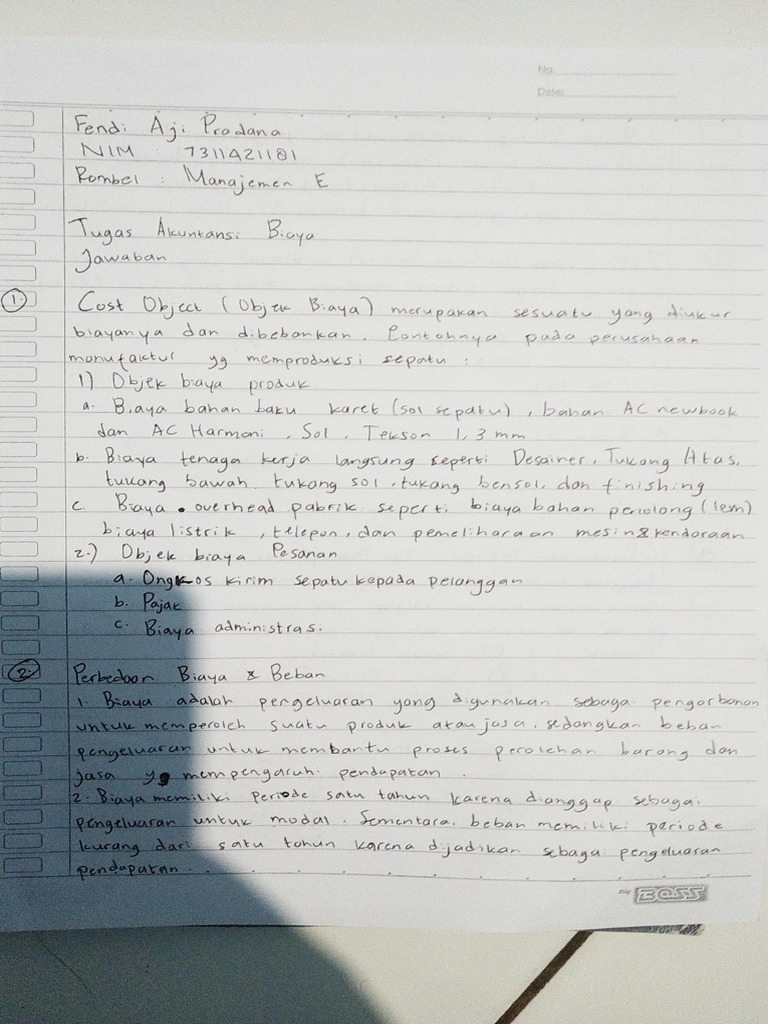 No.
Date:
Fendi Aji Pradana
NIM : 7311421181
Rombel : Manajemen E
Tugas Akuntansi Biaya
Jawaban
1. Cost Object (Objek Biaya) merupakan sesuatu yang diukur
biayanya dan dibebankan. Contohnya pada perusahaan
manufaktur yg memproduksi sepatu :
1) Objek biaya produk
a. Biaya bahan baku karet (sol sepatu), bahan AC newbook
dan AC Harmoni, Sol, Tekson 1,3 mm
b. Biaya tenaga kerja langsung seperti Desainer, Tukang Atas,
tukang bawah, tukang sol, tukang bensol, dan finishing
c. Biaya overhead pabrik seperti biaya bahan penolong (lem)
biaya listrik, telepon, dan pemeliharaan mesin & kendaraan
2.) Objek biaya Pesanan
a. Ongkos kirim sepatu kepada pelanggan
b. Pajak
c. Biaya administrasi
2. Perbedaan Biaya & Beban
1. Biaya adalah pengeluaran yang digunakan sebagai pengorbanan
untuk memperoleh suatu produk atau jasa, sedangkan beban
pengeluaran untuk membantu proses perolehan barang dan
jasa yg mempengaruhi pendapatan.
2. Biaya memiliki periode satu tahun karena dianggap sebagai
pengeluaran untuk modal. Sementara, beban memiliki periode
kurang dari satu tahun karena dijadikan sebagai pengeluaran
pendapatan.
BOSS